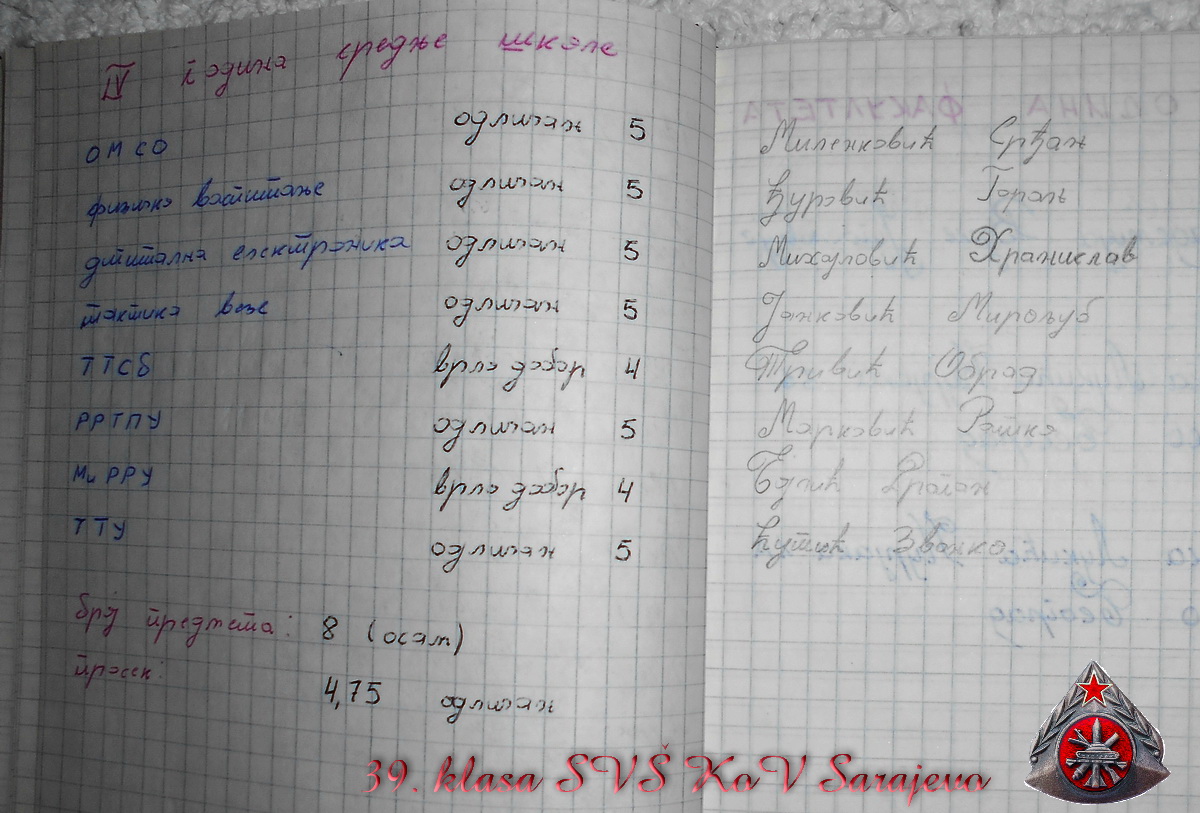 IV година средње школе
ОМСО одличан 5 Миленковић Срђан
физичко васпитање одличан 5 Ђуровић Горан
дигитална електроника одличан 5 Михајловић Хранислав
тактика везе одличан 5 Јанковић Мирољуб
ТТСб врло добар 4 Тривић Обрад
РРТПУ одличан 5 Марковић Ратко
МиРРУ врло добар 4 Драган
ТТУ одличан 5 Звонко
број предмета: 8 (осам)
просек: 4,75 одличан
39. klasa SVŠ KoV Sarajevo